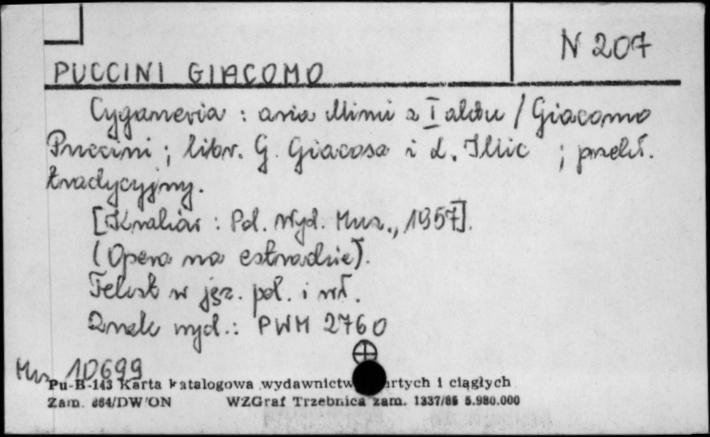 N 207
PUCCINI GIACOMO
Cyganeria : aria Mimi z I aktu / Giacomo
Puccini ; libr. G. Giacosa i L. Illic ; przekł.
tradycyjny.
[Kraków : Pol. Wyd. Muz., 1957].
(Opera na estradzie).
Tekst w jęz. pol. i wł.
Znak wyd.: PWM 2760
Muz 10699
Pu-B-143 Karta katalogowa wydawnictw zwartych i ciągłych
Zam. 664/DW/ON WZGraf Trzebnica zam. 1337/86 5.980.000